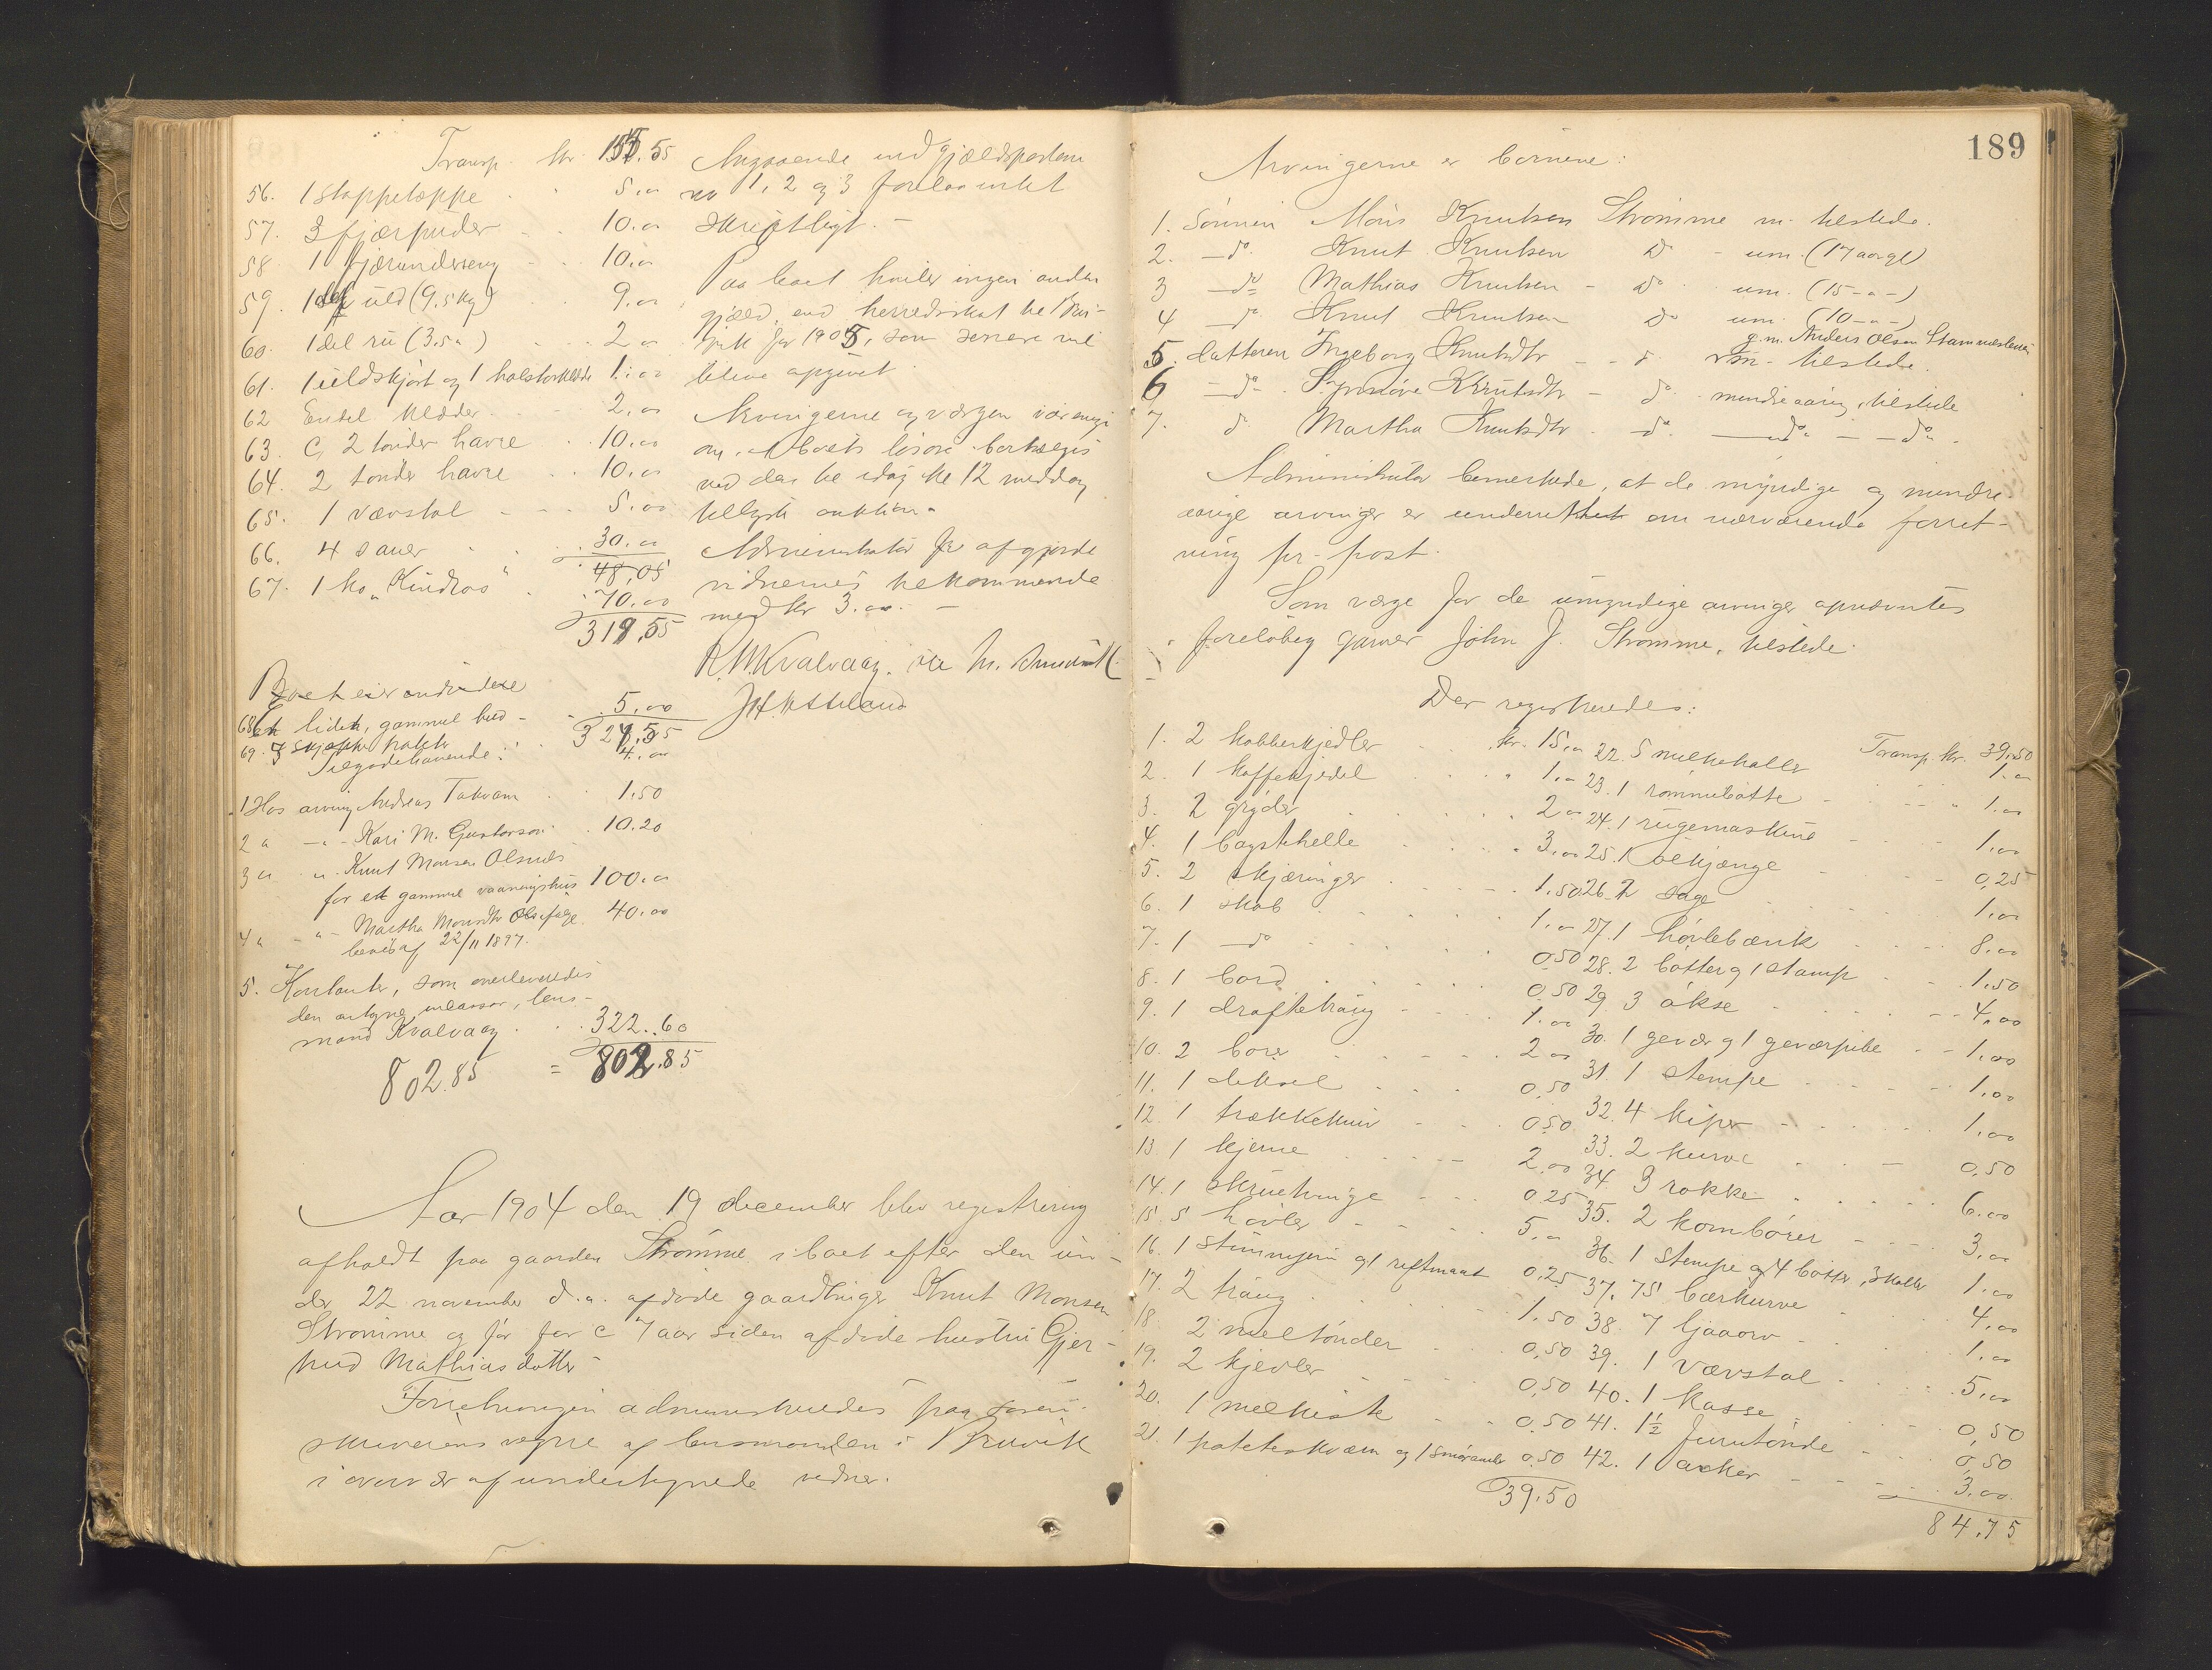 Transp. kr. 155.55
56. 1 stoppeteppe 5.00
57. 3 fjærpuder 10.00
58. 1 fjærunderseng 10.00
59. 1 del uld (9.5 kg) 9.00
60. 1 del ru (3.5 ") 2.00
61. 1 uldskjört og 1 halstørklæde 1.00
62 Endel klæder 2.00
63. C. 2 tønder havre 10.00
64. 2 tønder havre 10.00
65. 1 vævstol 5.00
66. 4 sauer 30.00
48,05
67. 1 ko "Kindros" 70.00
319,55
Boet eier endvidere
68. et lidet, gammel hus 5.00
324,55
69. 3 skjepper poteter 4.00
Tilgodehavende:
1 Hos arving Andreas Takvam 1.50
2 " -"- Kari M. Gustavson 10.20
3 " " Knut Monsen Olsnes
for et gammel vaaningshus 100.00
4 " -"- Martha Monsdtr Olsnes ifølge 40.00
bevis af 22/11 1897.
5. Kontanter, som overleveredes
den antagne inkassator, lens-
mand Kvalvaag 322.60
802.85 = 802.85
Angaaende indgjældsposten
no 1, 2 og 3 forelaa intet
skriftligt. -
Paa boet hviler ingen anden
gjæld end herredsskat til Bru-
vik for 1905, som senere vil
blive opgivet.
Arvingerne og værgen var enige
om, at boets løsøre bortsælges
ved den til idag kl 12 middag
tillyste auktion.
Administrator afgjorde
vidnernes tilkommende
med kr 3.00. -
R. M. Kvalvaag.
Aar 1904 den 19 december blev registrering
afholdt paa gaarden Strømme i boet efter den un-
der 22 november d.a. afdøde gaardbruger Knut Monsen
Strømme og før for c 7 aar siden afdøde hustru Gjer-
trud Mathiasdatter
Forretningen administreredes paa soren-
skriverens vegne af lensmanden i Bruvik
i overvær af undertegnede vidner.
189
Arvingerne er børnene:
1. Sønnen Mons Knutsen Strømme m. tilstede.
2. -do Knut Knutsen do - um. (17 aar gl)
3 -do- Mathias Knutsen - do um. (15 -"-)
4 -do Knut Knutsen do um. (10 -"-)
g.m. Anders Olsen Stamneshella
5. datteren Ingeborg Knutsdtr - - do tilstede.
6 -do- Synnøve Knutsdtr - do mindreaarig, tilstede
7. do Martha Knutsdtr do -do- -do-
Administrator bemerkede, at de myndige og mindre-
aarige arvinger er underrettet om nærværende forret-
ning pr. post.
Som værge for de umyndige arvinger opnævntes
foreløbig gaardbr John J. Strømme, tilstede.
Der registreredes:
1. 2 kobberkjedler kr. 15.00
2. 1 kaffekjedel " 1.00
3. 2 gryder 2.00
4. 1 bagstehelle " 3.00
5. 2 skjæringer 1.50
6. 1 skab 1.00
7. 1 -do 0.50
8. 1 bord 0.50
9. 1 drøftetraug 1.00
10. 2 borer 2.00
11. 1 deksel 0.50
12. 1 trækkekniv 0.50
13. 1 kjerne 2.00
14. 1 skruetvinge 0.25
15. 5 høvler 5.00
16. 1 stemmejern og 1 riftmaat 0.25
17. 2 traug 1.50
18. 2 meltønder 0.50
19. 2 kjevler 0.50
20. 1 melkist 0.50
21. 1 poteteskværn og 1 smøramber 0.50
39.50
Transp. kr. 39.50
22. 5 melkekoller 1.00
23. 1 rømmebøtte " 1.00
24. 1 rugemaskine 1.00
25. 1 ølkjænge 0,25
26. 2 sage 1.00
27. 1 høvlebænk 8.00
28. 2 bøtter og 1 stamp 1.50
29. 3 økse 4.00
30. 1 gevær og 1 geværpibe 1.00
31. 1 stempe 1.00
32. 4 kiper 1.00
33. 2 kurve 0.50
34. 3 rokke 6.00
35. 2 kornbører 3.00
36. 1 stempe og 4 bøtter, 3 koller 1.00
37. 75 bærkurve 4.00
38. 7 ljaaorv 1.00
39. 1 vævstol 5.00
40. 1 kasse 0,50
41. 1½ furutønde 0,50
42. 1 acker 3.00
84.75